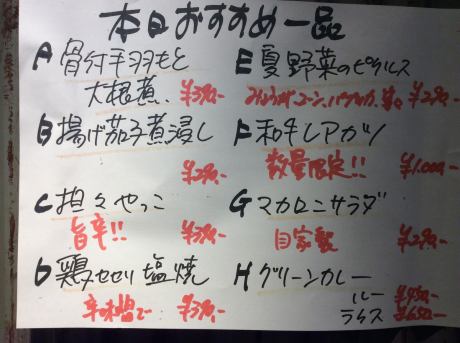 本日おすすめ一品
A 骨付手羽もと
大根煮 ¥390-
B 揚げ茄子煮浸し
¥290-
C 担々やっこ
旨辛!! ¥390-
D 鶏セセリ塩焼
辛味噌で ¥390-
E 夏野菜のピクルス
みょうが、コーン、パプリカ、 ¥290-
F 和牛レアカツ
数量限定!! ¥1.000-
G マカロニサラダ
自家製 ¥290-
H グリーンカレー
ルー ¥450-
ライス ¥650-